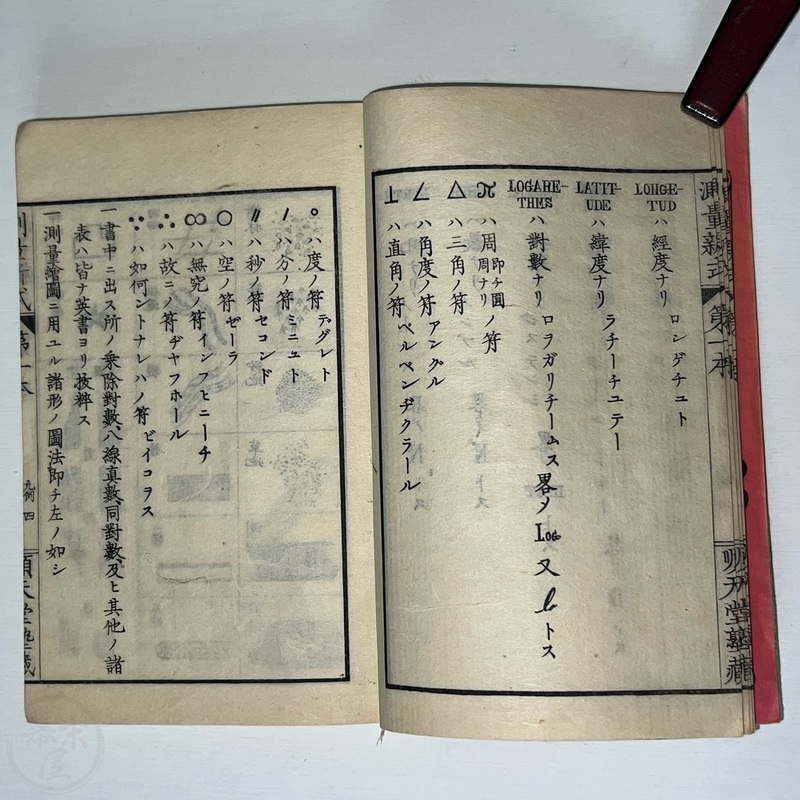 測量新式 第一本
順天堂塾藏
LONGE-
TUD ハ 經度ナリ ロンゲチュト
LATIT-
UDE ハ 緯度ナリ ラチーチュテー
LOGARE-
THMS ハ 對數ナリ ロラガリチームス 畧メ Log 又 l トス
π ハ 周 即チ圓周ナリ ノ符
△ ハ 三角ノ符
∠ ハ 角度ノ符 アングル
⊥ ハ 直角ノ符 ペルペンヂクラール
° ハ 度ノ符 デグレト
′ ハ 分ノ符 ミニュト
″ ハ 秒ノ符 セコンド
○ ハ 空ノ符 ゼーラ
∞ ハ 無究ノ符 インフヒニーチ
∴ ハ 故ニノ符 ヂヤフホール
∵ ハ 如何ントナレハノ符 ビイコヲス
一書中ニ出ス所ノ乗除對數、八線真數同對數、及ヒ其他ノ諸
表ハ皆ナ英書ヨリ抜粹ス
一測量繪圖ニ用ユル諸形ノ圖法即チ左ノ如シ
第一本
四
順天堂塾藏